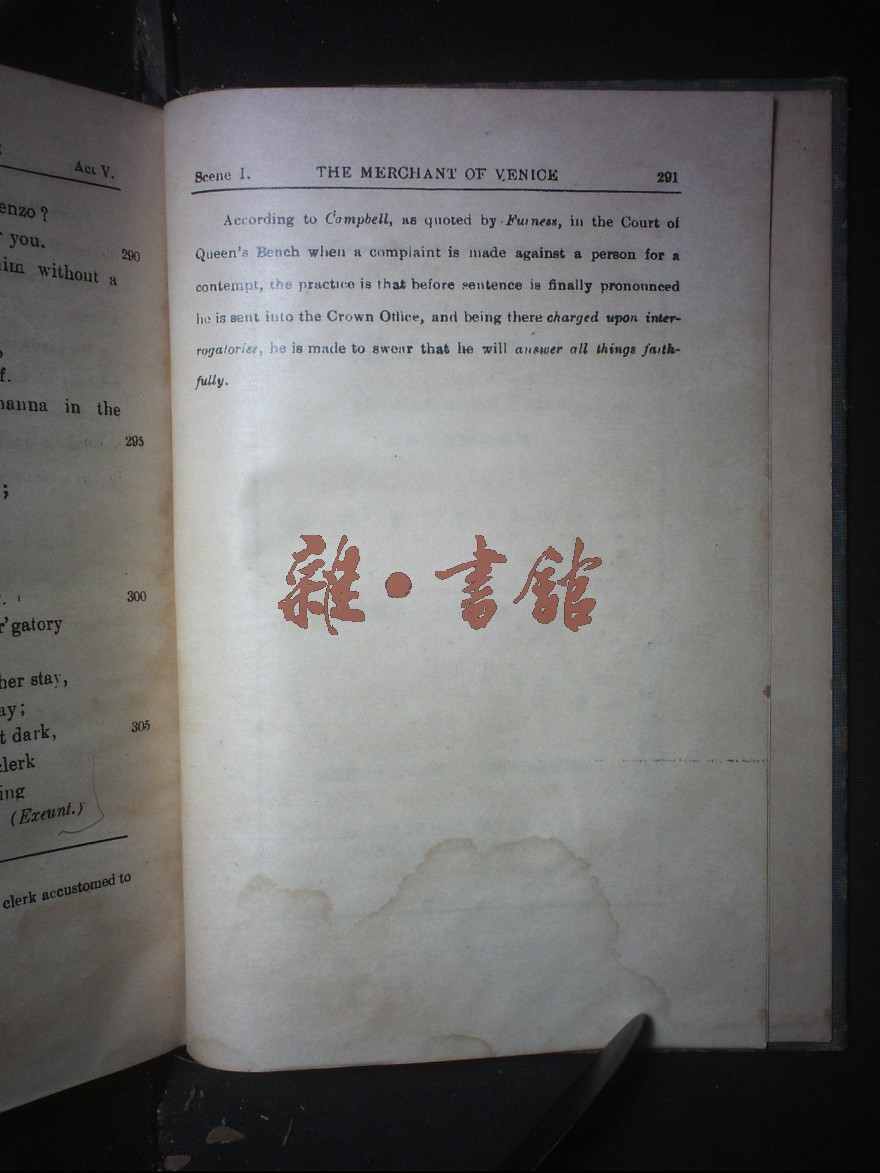 Act V.
enzo ?
you.
290
him without a
f.
manna in the
295
;
300
r'gatory
her stay,
ay;
t dark,
305
clerk
ing
(Exeunt.)
clerk accustomed to
Scene I. THE MERCHANT OF VENICE 291
According to Campbell, as quoted by Furness, in the Court of
Queen's Bench when a complaint is made against a person for a
contempt, the practice is that before sentence is finally pronounced
he is sent into the Crown Office, and being there charged upon inter-
rogatories, he is made to swear that he will answer all things faith-
fully.
雜·書館